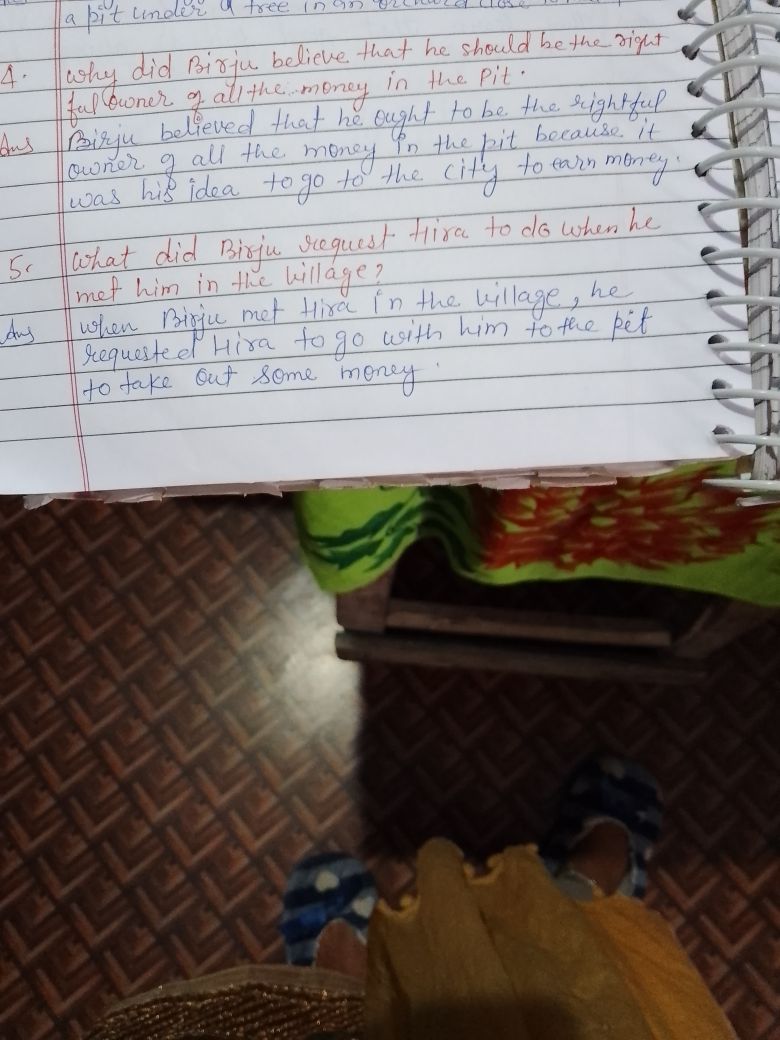 a pit under a tree in an orchard close to
4. Why did Birju believe that he should be the right
ful owner of all the money in the Pit.
Ans Birju believed that he ought to be the rightful
owner of all the money in the pit because it
was his idea to go to the city to earn money.
5. What did Birju request Hira to do when he
met him in the village?
Ans When Birju met Hira in the village, he
requested Hira to go with him to the pit
to take out some money.